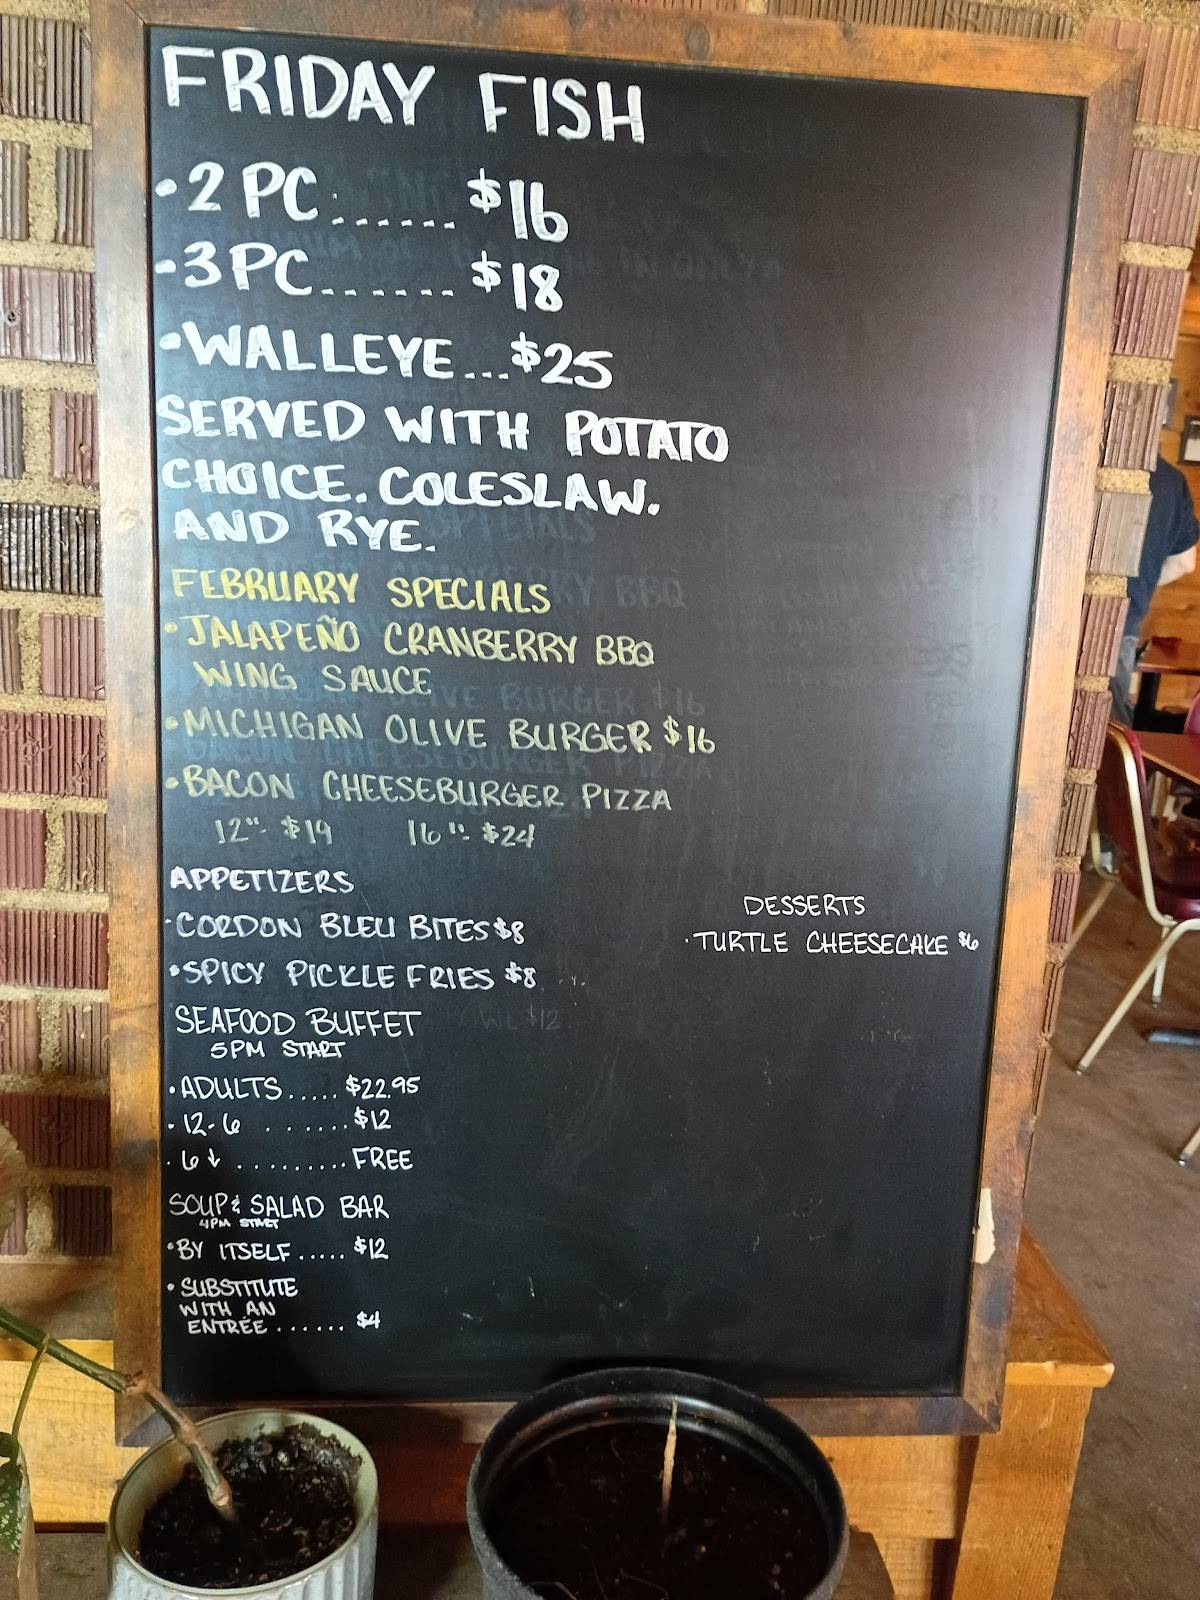 FRIDAY FISH
• 2 PC ...... $16
• 3 PC ...... $18
• WALLEYE ... $25
SERVED WITH POTATO
CHOICE. COLESLAW.
AND RYE.
FEBRUARY SPECIALS
• JALAPEÑO CRANBERRY BBQ
WING SAUCE
• MICHIGAN OLIVE BURGER $16
• BACON CHEESEBURGER PIZZA
12"- $19 16"- $24
APPETIZERS
• CORDON BLEU BITES $8
• SPICY PICKLE FRIES $8
SEAFOOD BUFFET
5PM START
• ADULTS ..... $22.95
• 12-6 ...... $12
• 6↓ ......... FREE
SOUP & SALAD BAR
4PM START
• BY ITSELF ..... $12
• SUBSTITUTE
WITH AN
ENTRÉE ...... $4
DESSERTS
• TURTLE CHEESECAKE $6